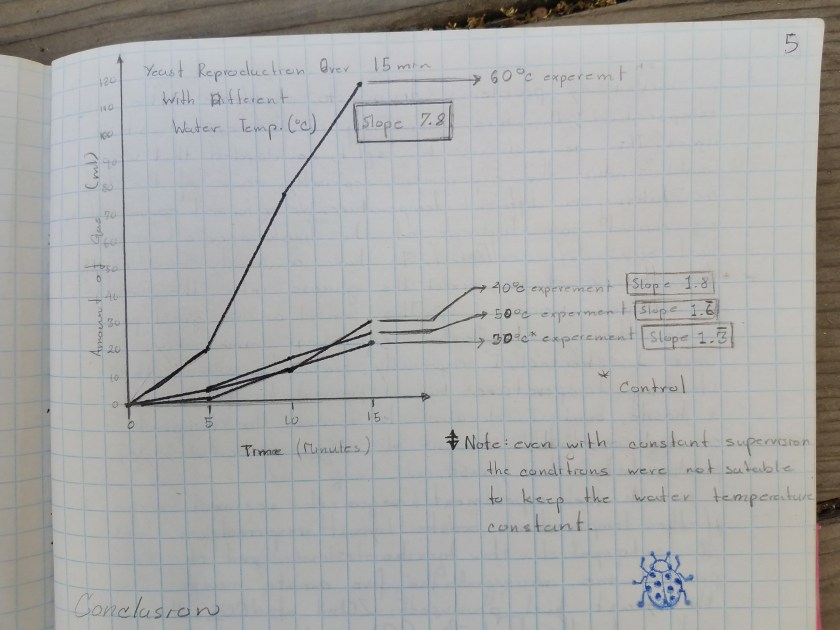 5
Yeast Reproduction Over 15 min
With Different
Water Temp. (°C)
Slope 7.8
60°c experemt
Amount of Gas (ml)
120
110
100
90
80
70
60
50
40
30
20
10
0
40°c experement Slope 1.8
50°c experment Slope 1.6̅
30°c* experement Slope 1.3̅
* Control
0 5 10 15
Time (Minutes)
Note: even with constant supervision
the conditions were not sutable
to keep the water temperature
constant.
Conclusion